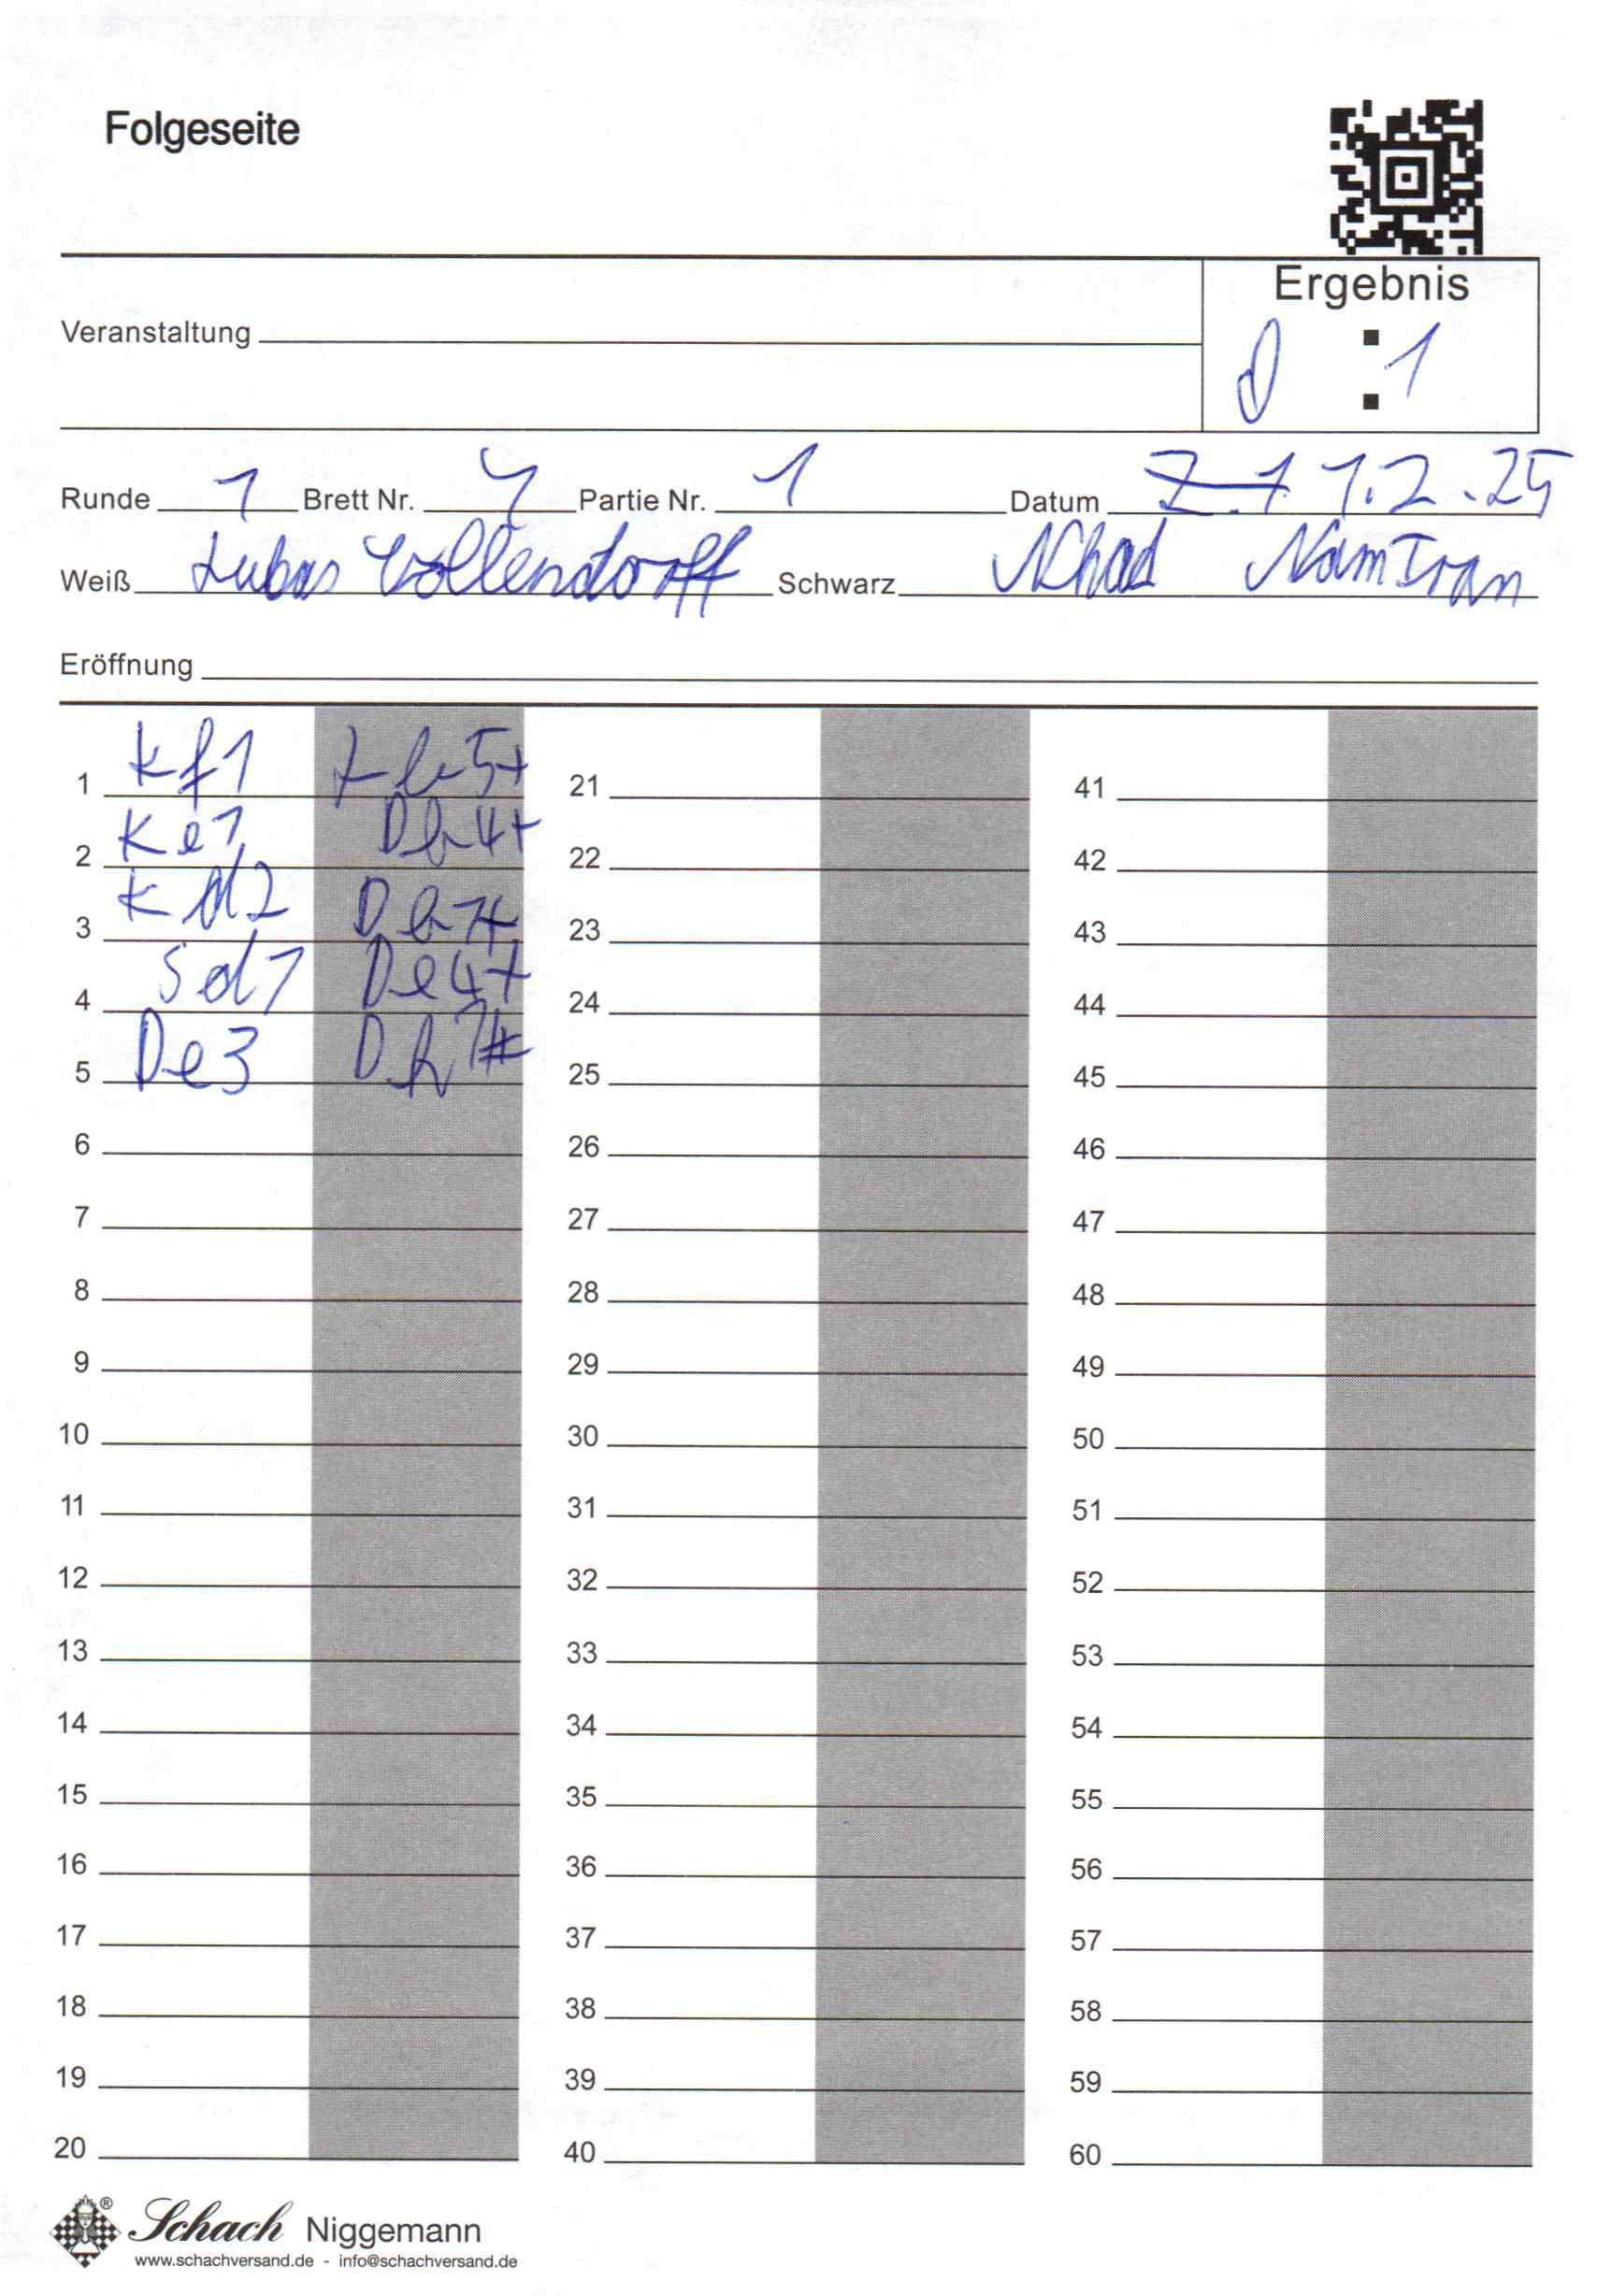 Folgeseite
Ergebnis
0 : 1
Veranstaltung
Runde 1 Brett Nr. 4 Partie Nr. 1 Datum 1.2.25
Weiß Lukas Wollendorff Schwarz Nhad Nam Tran
Eröffnung
1 Kf1 Lb5+ 21 41
2 Ke1 Db4+ 22 42
3 Kd2 Db7+ 23 43
4 Sd1 De4+ 24 44
5 De3 Dh7# 25 45
6 26 46
7 27 47
8 28 48
9 29 49
10 30 50
11 31 51
12 32 52
13 33 53
14 34 54
15 35 55
16 36 56
17 37 57
18 38 58
19 39 59
20 40 60
Schach Niggemann
www.schachversand.de - info@schachversand.de